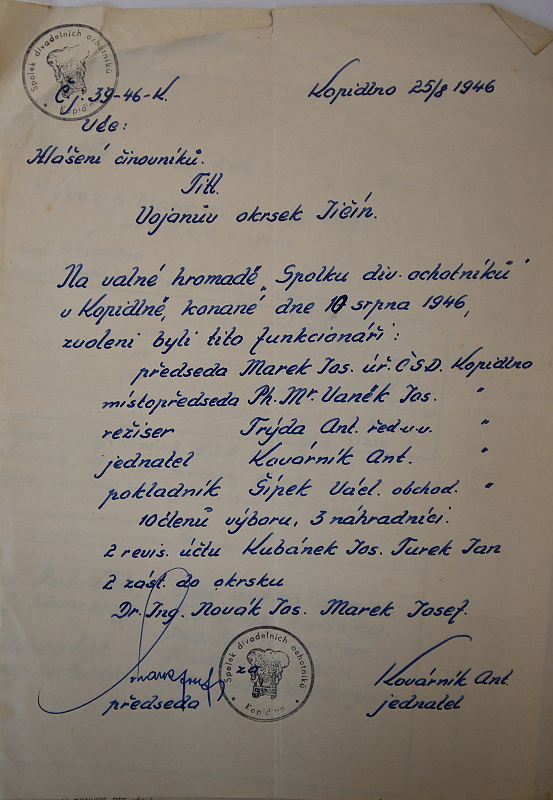 Spolek divadelních ochotníků
Kopidlno
Čj. 39-46-K.
Kopidlno 25/8 1946
Věc:
Hlášení činovníků.
Titl.
Vojanův okrsek Jičín.
Na valné hromadě „Spolku div. ochotníků"
v Kopidlně, konané dne 10 srpna 1946,
zvoleni byli tito funkcionáři:
předseda Marek Jos. úř. ČSD. Kopidlno
místopředseda Ph. Mr. Vaněk Jos. "
režiser Trýda Ant. řed.v.v. "
jednatel Kovárník Ant. "
pokladník Šípek Václ. obchod. "
10 členů výboru, 3 náhradníci.
2 revis. účtu Kubánek Jos. Turek Jan
2 zást. do okrsku
Dr. Ing. Novák Jos. Marek Josef.
za
Spolek divadelních ochotníků
Kopidlno
Kovárník Ant.
předseda
jednatel